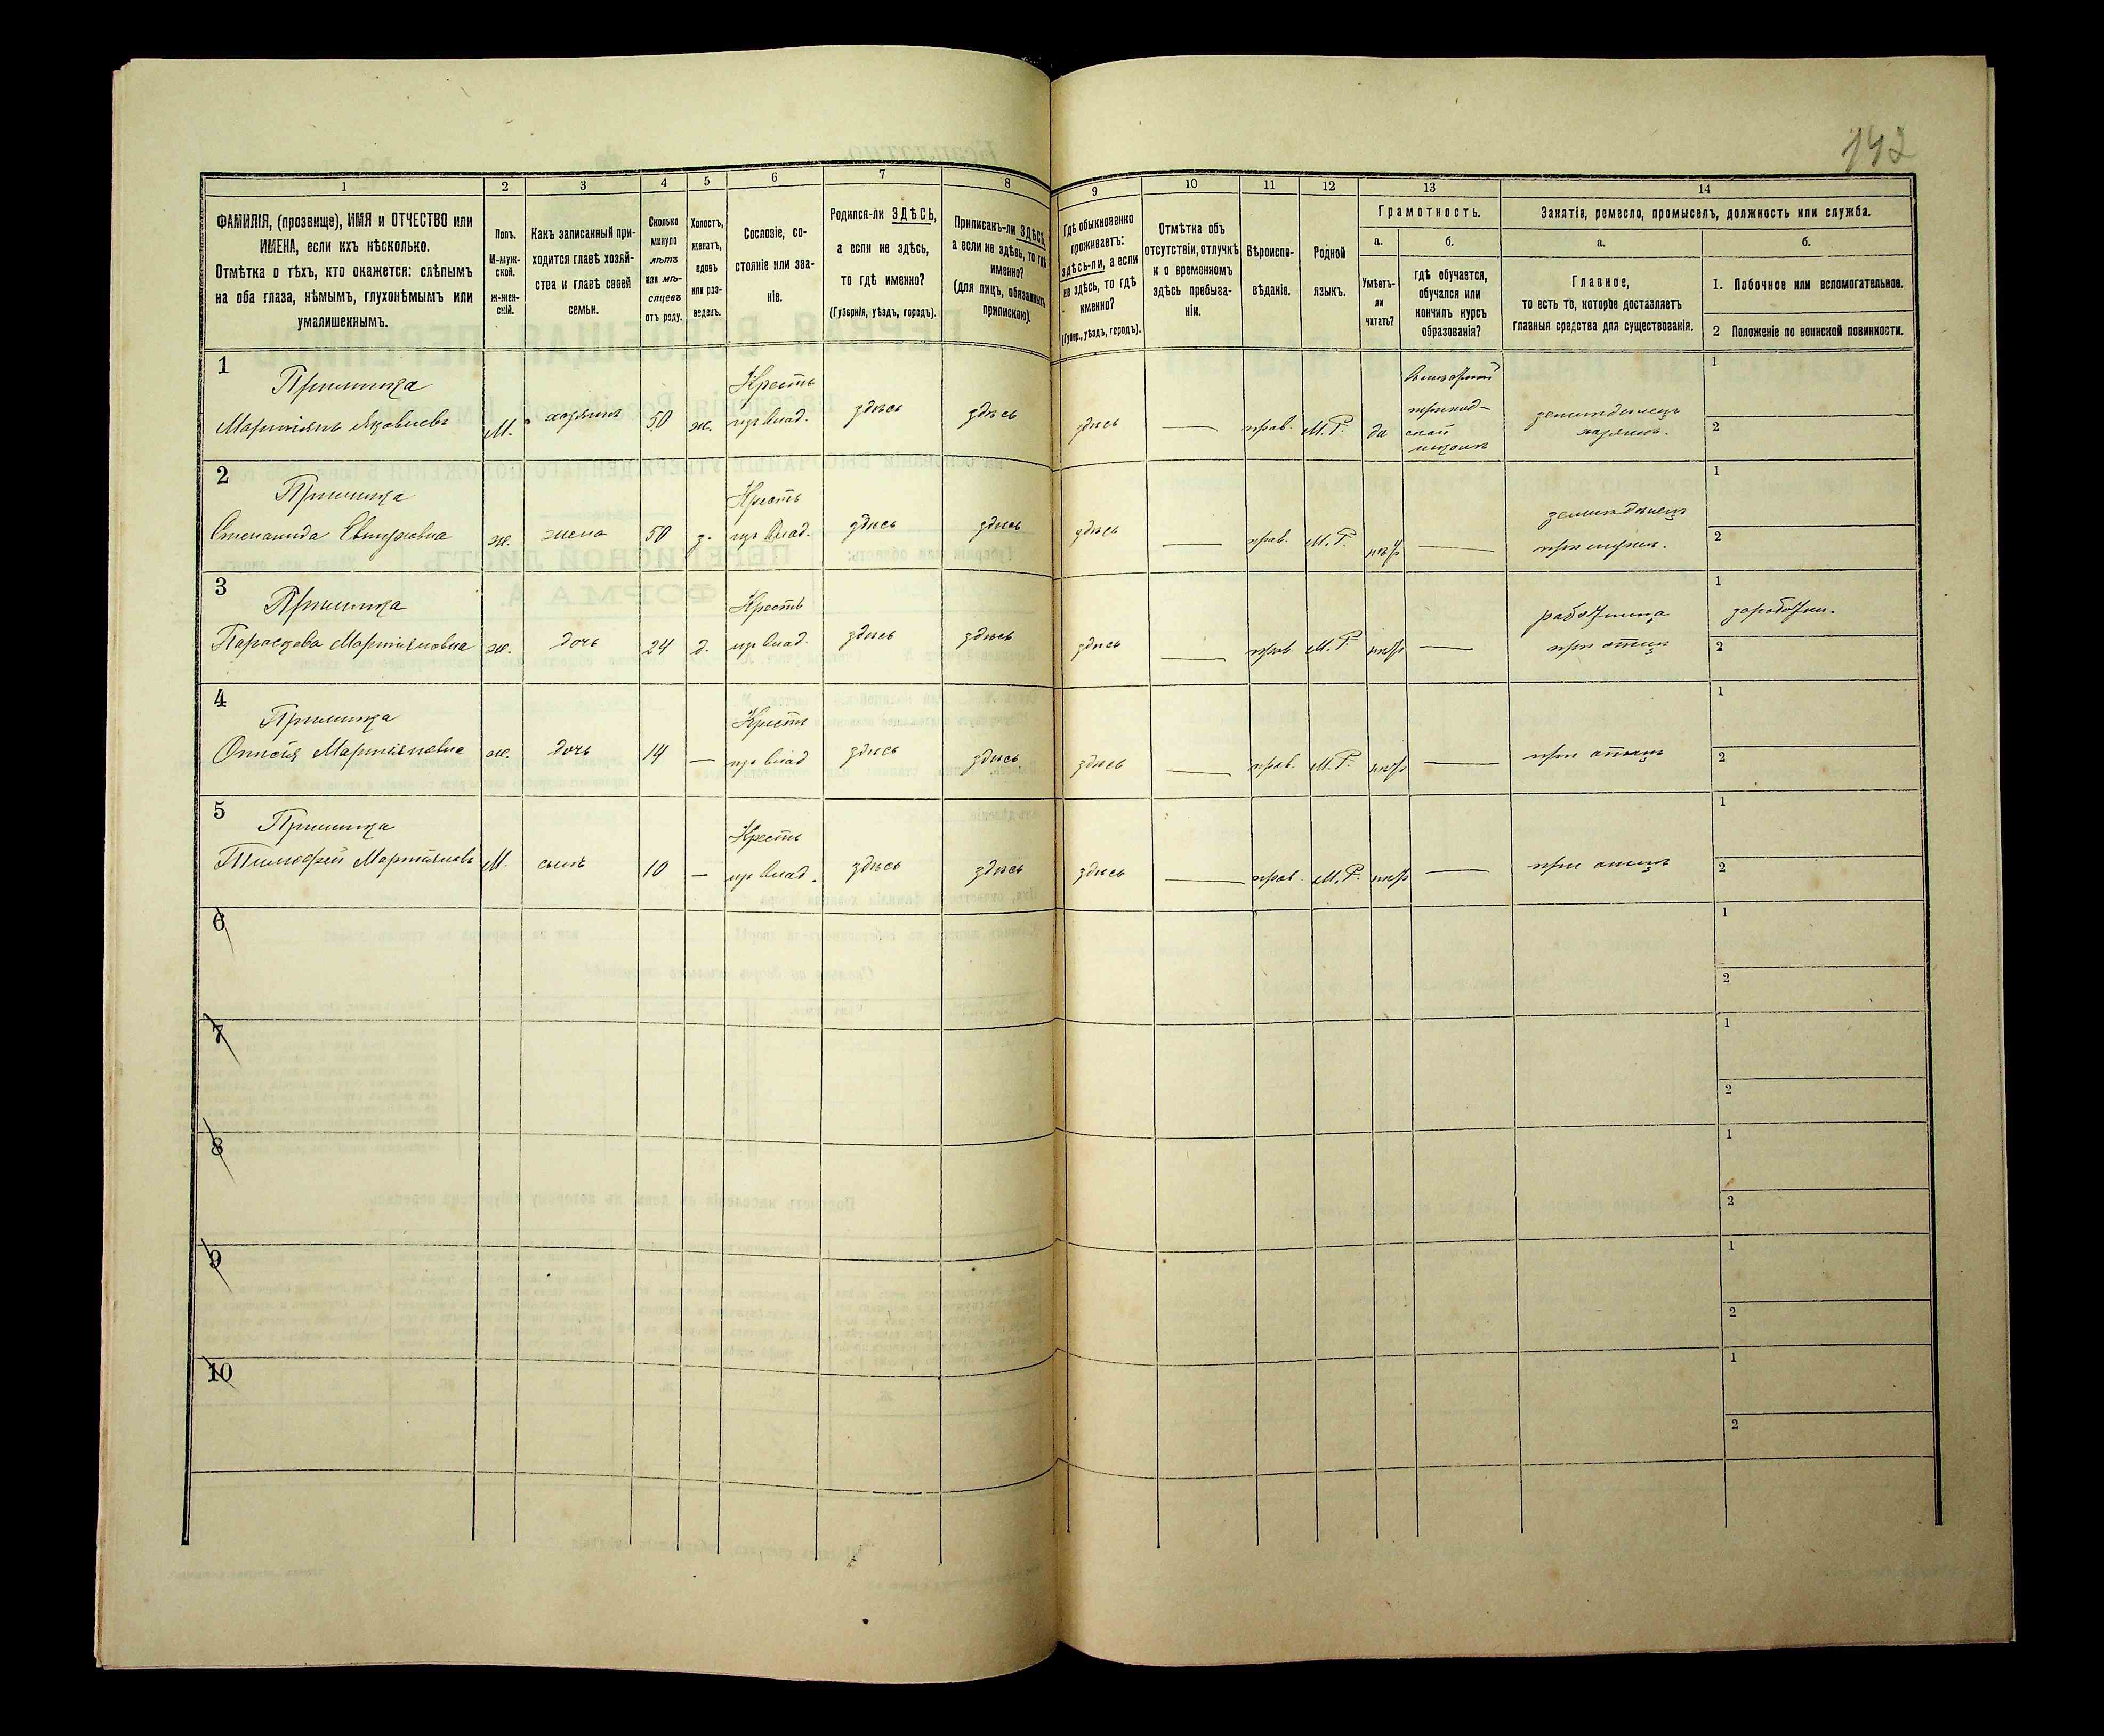 142
1 2 3 4 5 6 7 8 9 10 11 12 13 14
ФАМИЛІЯ, (прозвище), ИМЯ и ОТЧЕСТВО или
ИМЕНА, если ихъ нѣсколько.
Отмѣтка о тѣхъ, кто окажется: слѣпымъ
на оба глаза, нѣмымъ, глухонѣмымъ или
умалишеннымъ.
Полъ.
М-муж-
ской.
ж-жен-
скій.
Какъ записанный при-
ходится главѣ хозяй-
ства и главѣ своей
семьи.
Сколько
минуло
лѣтъ
или мѣ-
сяцевъ
отъ роду.
Холостъ,
женатъ,
вдовъ
или раз-
веденъ.
Сословіе, со-
стояніе или зва-
ніе.
Родился-ли ЗДѢСЬ,
а если не здѣсь,
то гдѣ именно?
(Губернія, уѣздъ, городъ).
Приписанъ-ли ЗДѢСЬ,
а если не здѣсь, то гдѣ
именно?
(для лицъ, обязанныхъ
припискою).
Гдѣ обыкновенно
проживаетъ:
здѣсь-ли, а если
не здѣсь, то гдѣ
именно?
(Губер., уѣздъ, городъ).
Отмѣтка объ
отсутствіи, отлучкѣ
и о временномъ
здѣсь пребыва-
ніи.
Вѣроиспо-
вѣданіе.
Родной
языкъ.
Грамотность.
а.
Умѣетъ-
ли
читать?
б.
гдѣ обучается,
обучался или
кончилъ курсъ
образованія?
Занятіе, ремесло, промыселъ, должность или служба.
а.
Главное,
то есть то, которое доставляетъ
главныя средства для существованія.
б.
1. Побочное или вспомогательное.
2 Положеніе по воинской повинности.
1
Мартіянъ Яковлевъ
М. хозяинъ 50 ж.
Крестъ
из влад.
здѣсь здѣсь здѣсь — прав. М.Р. да
приход-
ской
школѣ
земледѣлецъ
хозяинъ.
1
2
2
Степанида
ж. жена 50 з.
Крестъ
из влад.
здѣсь здѣсь здѣсь — прав. М.Р. —
земледѣлецъ
при мужѣ.
1
2
3
Параскева Мартіяновна
ж. дочь 24 д.
Крестъ
из влад.
здѣсь здѣсь здѣсь — прав. М.Р. —
работница
при отцѣ
1
2
4
Мартіяновна
ж. дочь 14 —
Крестъ
из влад
здѣсь здѣсь здѣсь — прав. М.Р. —
при отцѣ
1
2
5
Тимофей Мартіяновъ
М. сынъ 10 —
Крестъ
из влад.
здѣсь здѣсь здѣсь — прав. М.Р. —
при отцѣ
1
2
6
1
2
7
1
2
8
1
2
9
1
2
10
1
2